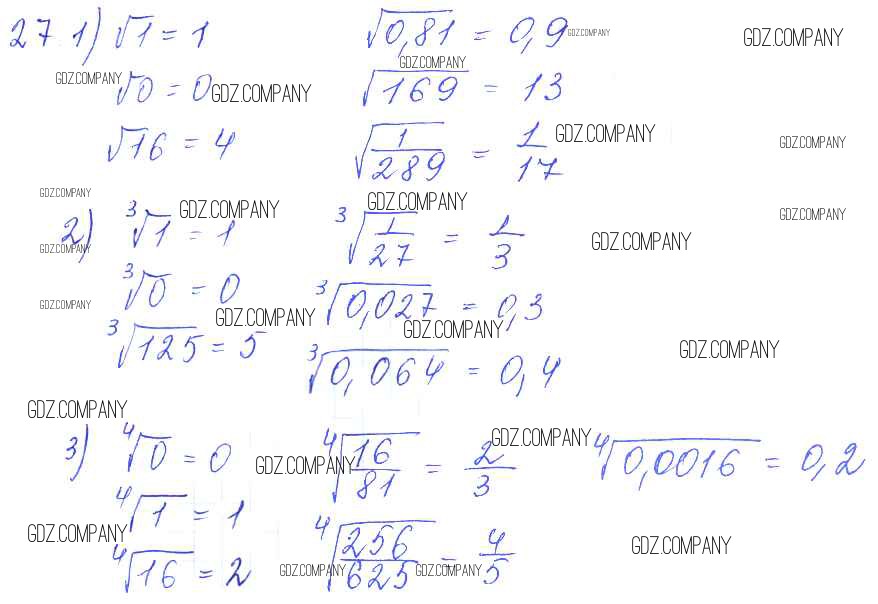 27. 1) √1 = 1 √0,81 = 0,9 GDZ.COMPANY GDZ.COMPANY
GDZ.COMPANY √0 = 0 GDZ.COMPANY GDZ.COMPANY √169 = 13
√16 = 4 √(1/289) = 1/17 GDZ.COMPANY GDZ.COMPANY
GDZ.COMPANY GDZ.COMPANY GDZ.COMPANY GDZ.COMPANY
2) ³√1 = 1 ³√(1/27) = 1/3 GDZ.COMPANY
GDZ.COMPANY
³√0 = 0 ³√0,027 = 0,3
GDZ.COMPANY GDZ.COMPANY GDZ.COMPANY
³√125 = 5 ³√0,064 = 0,4 GDZ.COMPANY
GDZ.COMPANY
3) ⁴√0 = 0 GDZ.COMPANY ⁴√(16/81) = 2/3 GDZ.COMPANY ⁴√0,0016 = 0,2
GDZ.COMPANY ⁴√1 = 1
⁴√16 = 2 GDZ.COMPANY ⁴√(256/625) = 4/5 GDZ.COMPANY GDZ.COMPANY